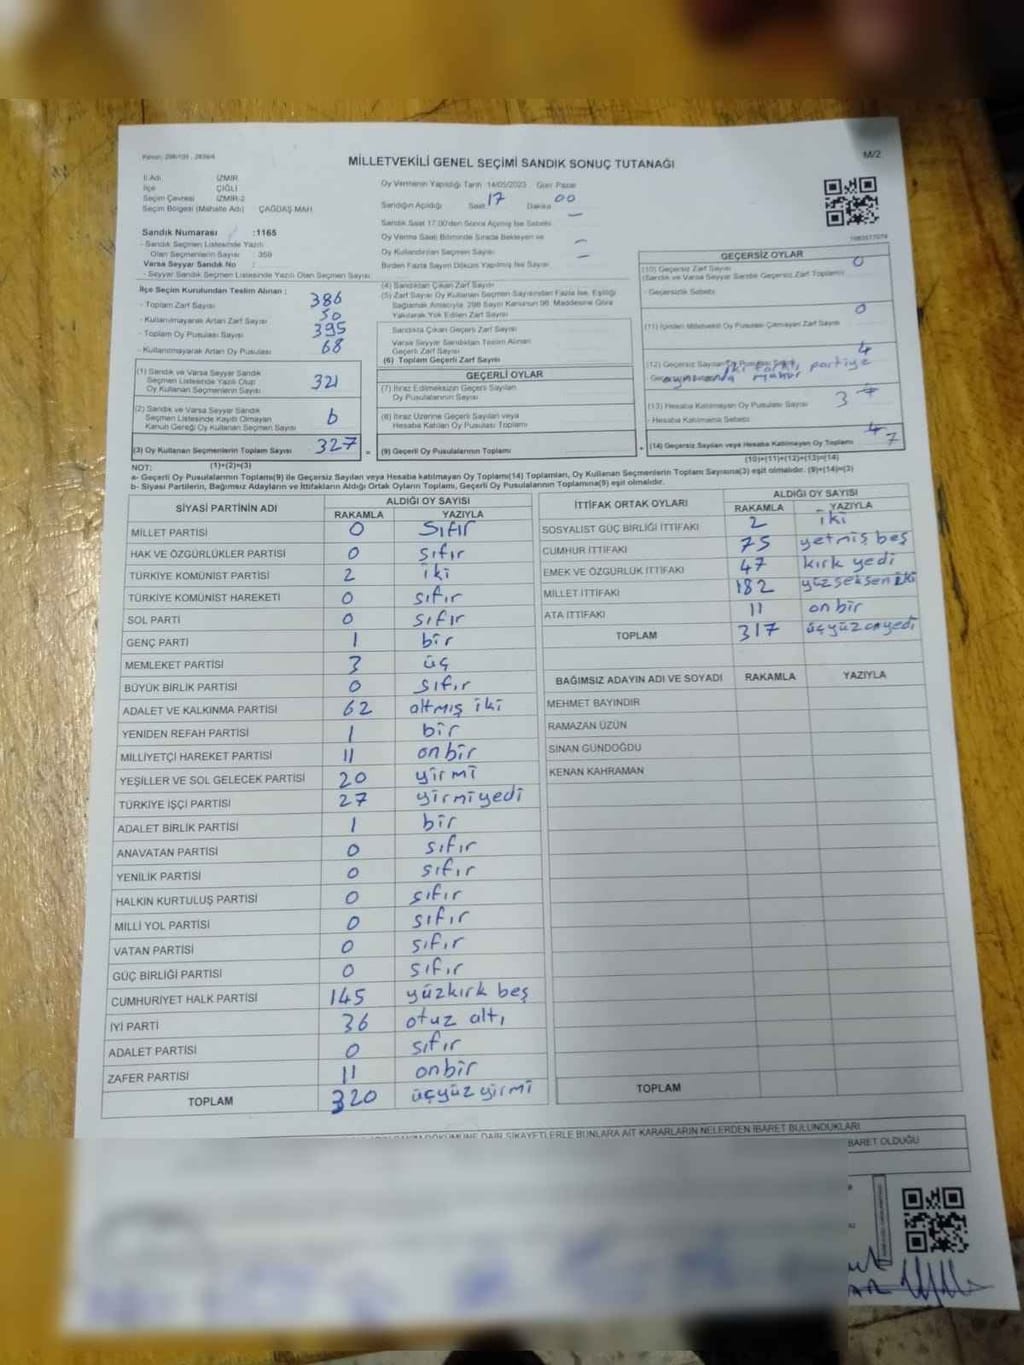 MİLLETVEKİLİ GENEL SEÇİMİ SANDIK SONUÇ TUTANAĞI
M/2
İl Adı : İZMİR
İlçe : ÇİĞLİ
Seçim Çevresi : İZMİR-2
Seçim Bölgesi (Mahalle Adı) : ÇAĞDAŞ MAH.
Oy Vermenin Yapıldığı Tarih :14/05/2023 Gün: Pazar
Sandığın Açıldığı Saat 17 Dakika 00
Sandık Saat 17:00'den Sonra Açılmış İse Sebebi
Oy Verme Saati Bitiminde Sırada Bekleyen ve
Oy Kullandırılan Seçmen Sayısı
Birden Fazla Sayım Döküm Yapılmış İse Sayısı
Sandık Numarası :1165
- Sandık Seçmen Listesinde Yazılı
Olan Seçmenlerin Sayısı
Varsa Seyyar Sandık No
- Seyyar Sandık Seçmen Listesinde Yazılı Olan Seçmen Sayısı
İlçe Seçim Kurulundan Teslim Alınan :
- Toplam Zarf Sayısı 386
- Kullanılmayarak Artan Zarf Sayısı 50
- Toplam Oy Pusulası Sayısı 395
- Kullanılmayarak Artan Oy Pusulası 68
(1) Sandık ve Varsa Seyyar Sandık
Seçmen Listesinde Yazılı Olup
Oy Kullanan Seçmenlerin Sayısı 321
(2) Sandık ve Varsa Seyyar Sandık
Seçmen Listesinde Kayıtlı Olmayan
Kanun Gereği Oy Kullanan Seçmen Sayısı 6
(3) Oy Kullanan Seçmenlerin Toplam Sayısı 327 =
(1)+(2)=(3)
(4) Sandıktan Çıkan Zarf Sayısı
(5) Zarf Sayısı Oy Kullanan Seçmen Sayısından Fazla İse, Eşitliği
Sağlamak Amacıyla, 298 Sayılı Kanunun 98. Maddesine Göre
Yakılarak Yok Edilen Zarf Sayısı
Sandıkta Çıkan Geçerli Zarf Sayısı
Varsa Seyyar Sandıktan Teslim Alınan
Geçerli Zarf Sayısı
(6) Toplam Geçerli Zarf Sayısı
GEÇERLİ OYLAR
(7) İtiraz Edilmeksizin Geçerli Sayılan
Oy Pusulalarının Sayısı
(8) İtiraz Üzerine Geçerli Sayılan veya
Hesaba Katılan Oy Pusulası Toplamı
(9) Geçerli Oy Pusulalarının Toplamı +
GEÇERSİZ OYLAR
(10) Geçersiz Zarf Sayısı 0
(Sandık ve Varsa Seyyar Sandık Geçersiz Zarf Toplamı)
- Geçersizlik Sebebi
(11) İçinden Milletvekili Oy Pusulası Çıkmayan Zarf Sayısı 0
(12) Geçersiz Sayılan 4
iki farklı partiye
mühür
(13) Hesaba Katılmayan Oy Pusulası Sayısı 3
- Hesaba Katılmama Sebebi
(14) Geçersiz Sayılan veya Hesaba Katılmayan Oy Toplamı 7
(10)+(11)+(12)+(13)=(14)
NOT:
a- Geçerli Oy Pusulalarının Toplamı(9) ile Geçersiz Sayılan veya Hesaba katılmayan Oy Toplamı(14) Toplamları, Oy Kullanan Seçmenlerin Toplam Sayısına(3) eşit olmalıdır. (9)+(14)=(3)
b- Siyasi Partilerin, Bağımsız Adayların ve İttifakların Aldığı Ortak Oyların Toplamı, Geçerli Oy Pusulalarının Toplamına(9) eşit olmalıdır.
SİYASİ PARTİNİN ADI ALDIĞI OY SAYISI
RAKAMLA YAZIYLA
MİLLET PARTİSİ 0 Sıfır
HAK VE ÖZGÜRLÜKLER PARTİSİ 0 sıfır
TÜRKİYE KOMÜNİST PARTİSİ 2 iki
TÜRKİYE KOMÜNİST HAREKETİ 0 sıfır
SOL PARTİ 0 sıfır
GENÇ PARTİ 1 bir
MEMLEKET PARTİSİ 3 üç
BÜYÜK BİRLİK PARTİSİ 0 sıfır
ADALET VE KALKINMA PARTİSİ 62 altmış iki
YENİDEN REFAH PARTİSİ 1 bir
MİLLİYETÇİ HAREKET PARTİSİ 11 onbir
YEŞİLLER VE SOL GELECEK PARTİSİ 20 yirmi
TÜRKİYE İŞÇİ PARTİSİ 27 yirmiyedi
ADALET BİRLİK PARTİSİ 1 bir
ANAVATAN PARTİSİ 0 sıfır
YENİLİK PARTİSİ 0 sıfır
HALKIN KURTULUŞ PARTİSİ 0 sıfır
MİLLİ YOL PARTİSİ 0 sıfır
VATAN PARTİSİ 0 sıfır
GÜÇ BİRLİĞİ PARTİSİ 0 sıfır
CUMHURİYET HALK PARTİSİ 145 yüzkırk beş
İYİ PARTİ 36 otuz altı
ADALET PARTİSİ 0 sıfır
ZAFER PARTİSİ 11 onbir
TOPLAM 320 üçyüz yirmi
İTTİFAK ORTAK OYLARI ALDIĞI OY SAYISI
RAKAMLA YAZIYLA
SOSYALIST GÜÇ BİRLİĞİ İTTİFAKI 2 iki
CUMHUR İTTİFAKI 75 yetmiş beş
EMEK VE ÖZGÜRLÜK İTTİFAKI 47 kırk yedi
MİLLET İTTİFAKI 182 yüz seksen iki
ATA İTTİFAKI 11 onbir
TOPLAM 317 üçyüz onyedi
BAĞIMSIZ ADAYIN ADI VE SOYADI RAKAMLA YAZIYLA
MEHMET BAYINDIR
RAMAZAN ÜZÜN
SİNAN GÜNDOĞDU
KENAN KAHRAMAN
TOPLAM
DÖKÜMÜNE DAİR ŞİKAYETLERLE BUNLARA AİT KARARLARIN NELERDEN İBARET BULUNDUKLARI
İBARET OLDUĞU